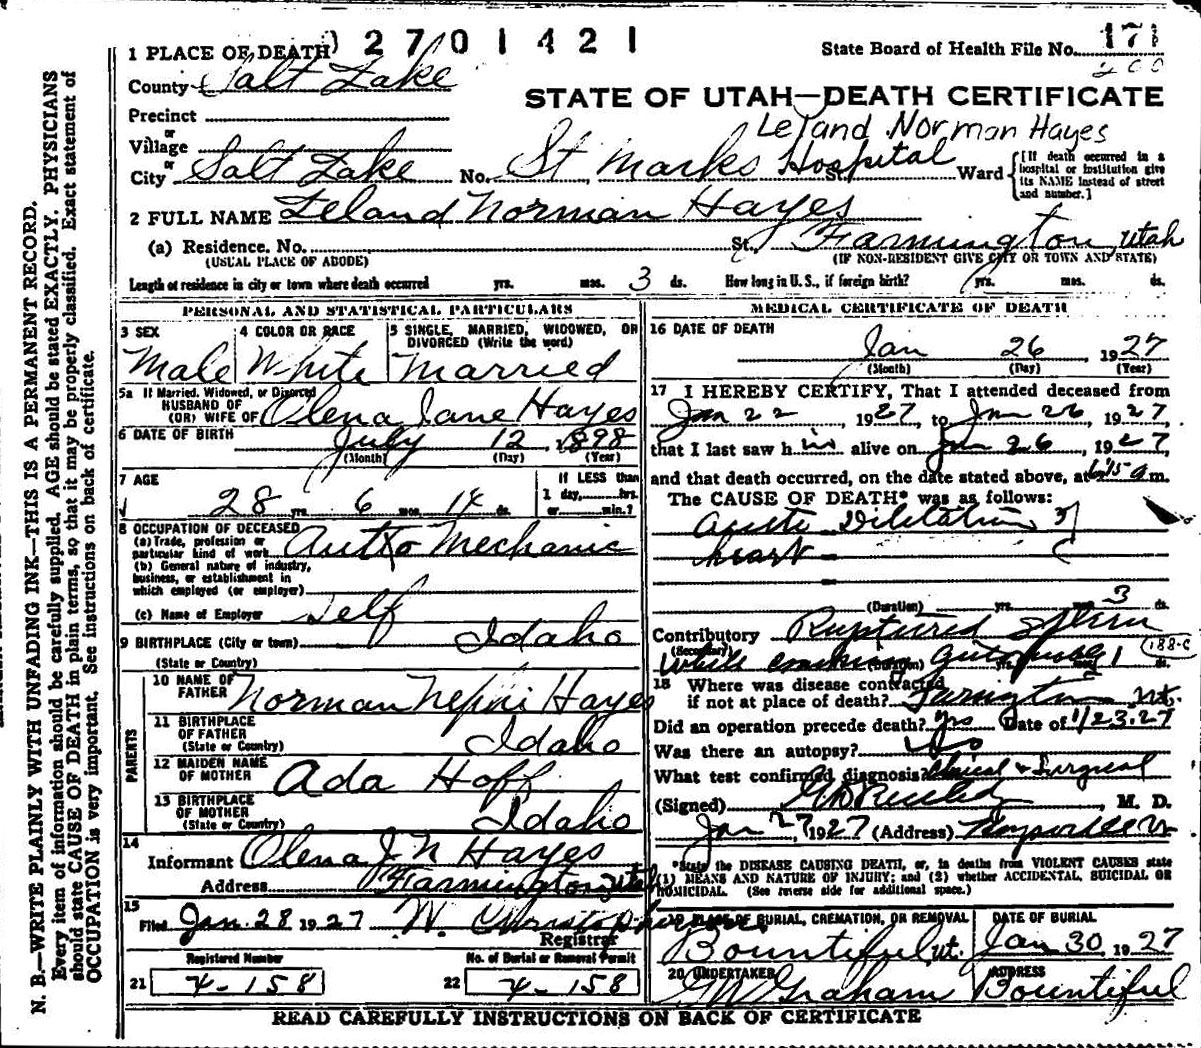 1 PLACE OF DEATH 2701421
State Board of Health File No. 171
200
County Salt Lake
STATE OF UTAH—DEATH CERTIFICATE
Precinct
Leland Norman Hayes
or
Village
or
City Salt Lake No. St Marks Hospital St. Ward
[If death occurred in a
hospital or institution give
its NAME instead of street
and number.]
2 FULL NAME Leland Norman Hayes
(a) Residence. No. St. Farmington, Utah
(USUAL PLACE OF ABODE) (IF NON-RESIDENT GIVE CITY OR TOWN AND STATE)
Length of residence in city or town where death occurred yrs. mos. 3 ds. How long in U.S., if foreign birth? yrs. mos. ds.
PERSONAL AND STATISTICAL PARTICULARS
3 SEX 4 COLOR OR RACE 5 SINGLE, MARRIED, WIDOWED, OR
DIVORCED (Write the word)
Male White Married
5a If Married, Widowed, or Divorced
HUSBAND OF
(OR) WIFE OF Olena Jane Hayes
6 DATE OF BIRTH July 12, 1898
(Month) (Day) (Year)
7 AGE If LESS than
28 yrs. 6 mos. 14 ds. 1 day, hrs.
or min.?
8 OCCUPATION OF DECEASED
(a) Trade, profession or
particular kind of work Autto Mechanic
(b) General nature of industry,
business, or establishment in
which employed (or employer)
(c) Name of Employer Self
9 BIRTHPLACE (City or town) Idaho
(State or Country)
PARENTS
10 NAME OF
FATHER Norman Nephi Hayes
11 BIRTHPLACE
OF FATHER
(State or Country) Idaho
12 MAIDEN NAME
OF MOTHER Ada Hoff
13 BIRTHPLACE
OF MOTHER
(State or Country) Idaho
14
Informant Olena J N Hayes
Address Farmington Utah
15
Filed Jan. 28 1927 W. Christopherson
Registrar
Registered Number No. of Burial or Removal Permit
21 4-158 22 4-158
MEDICAL CERTIFICATE OF DEATH
16 DATE OF DEATH
Jan 26, 1927
(Month) (Day) (Year)
17 I HEREBY CERTIFY, That I attended deceased from
Jan 22, 1927, to Jan 26, 1927,
that I last saw him alive on Jan 26, 1927,
and that death occurred, on the date stated above, at 6:15 a m.
The CAUSE OF DEATH* was as follows:
Acute Dilitation of
heart
(Duration) yrs. mos. 3 ds.
Contributory Ruptured Spleen
(Secondary)
While cranking automobile (Duration) 1 ds. 188-c
18 Where was disease contracted
if not at place of death? Farmington Ut.
Did an operation precede death? yes Date of 1/23.27
Was there an autopsy? No
What test confirmed diagnosis? Clinical & Surgical
(Signed) , M. D.
Jan 27, 1927 (Address) Kaysville Ut
*State the DISEASE CAUSING DEATH, or, in deaths from VIOLENT CAUSES state
(1) MEANS AND NATURE OF INJURY; and (2) whether ACCIDENTAL, SUICIDAL OR
HOMICIDAL. (See reverse side for additional space.)
19 PLACE OF BURIAL, CREMATION, OR REMOVAL DATE OF BURIAL
Bountiful, Ut. Jan 30, 1927
20 UNDERTAKER ADDRESS
G W Graham Bountiful
READ CAREFULLY INSTRUCTIONS ON BACK OF CERTIFICATE
N. B.—WRITE PLAINLY WITH UNFADING INK—THIS IS A PERMANENT RECORD.
Every item of information should be carefully supplied. AGE should be stated EXACTLY. PHYSICIANS
should state CAUSE OF DEATH in plain terms, so that it may be properly classified. Exact statement of
OCCUPATION is very important. See instructions on back of certificate.